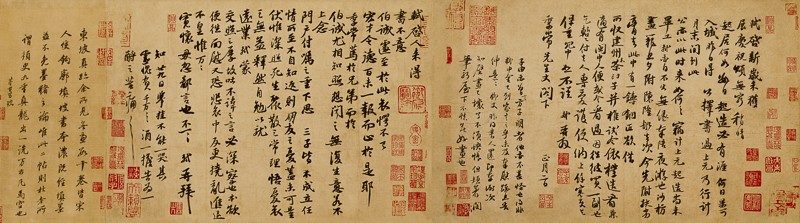 軾啓新歲未獲展慶祝頌無窮稍晴
起居何如數日起造必有涯何日果可
入城昨日得公擇書過上元乃行計
月末間到此
公亦以此時來如何竊計上元起造尚未
畢工軾亦自不出無緣奉陪夜遊也沙枋
畫籠旦夕附陳隆船去次今先附扶劣
膏去此中有一鑄銅匠欲借
所收建州木茶臼子并椎試令依樣造看兼
適有閩中人便或令看過因往彼買一副也
乞暫付去人專愛護便納上餘寒更乞
保重冗中恕不謹軾再拜
季常先生丈閣下 正月二日
子由亦曾言方子明者他亦不甚怪也得非
柳中舍已到家言之乎未及奉慰疏且告
伸意伸意柳丈昨得書人還即奉謝次
知壁畫已壞了不須怪但頓着潤筆
新屋下不愁無好畫也
軾啓人來得
書不意
伯誠遽至於此哀愕不已
宏才令德百未一報而止於是耶
季常篤於兄弟而於
伯誠尤相知照想聞之無復生意若不
上念
門户付囑之重下思三子皆不成立任
情所至不自知返則朋友之憂蓋未可量
伏惟深照死生聚散之常理悟憂哀
之無益釋然自勉以就
遠業軾蒙
交照之厚故吐不諱之言必深察也本欲
便往面慰又恐悲哀中反更撓亂進退
不皇惟萬萬
寬懷毋忽鄙言也不一一軾再拜
知廿九日舉掛不能一哭其
靈愧負千萬千萬酒一擔告爲一
酹之苦痛苦痛
東坡真跡余所見無慮數十卷皆宋
人雙鉤廓填坡書本濃既經填墨
益不免墨豬之論唯此二帖則杜老所
謂須臾九重真龍出一洗萬古凡馬空也
董其昌題